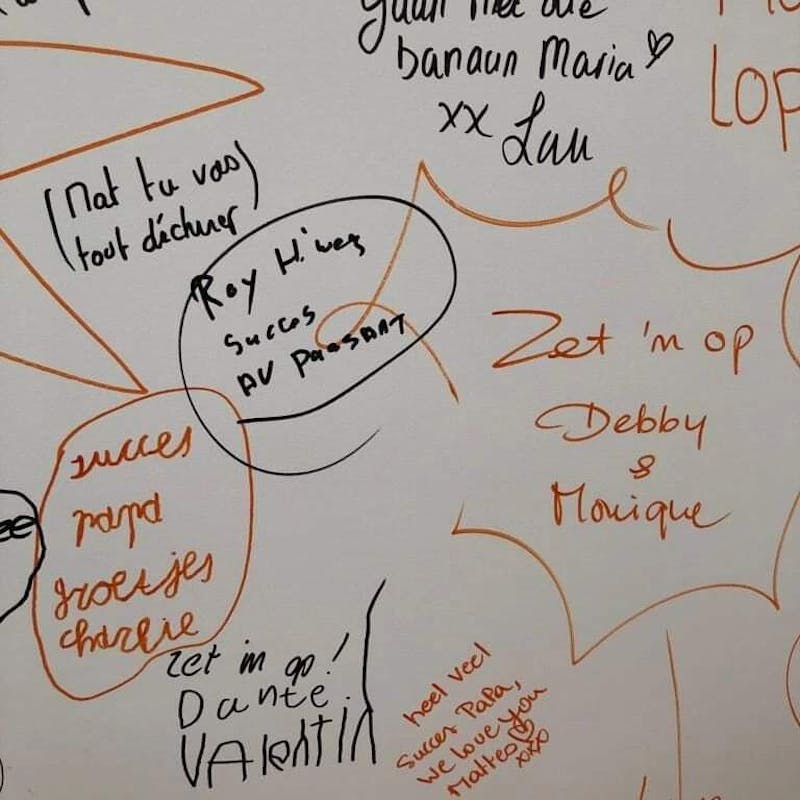 banaun Maria
xx Lau
LOP
(Mat tu vas)
(tout déchirer)
Roy
Succes
AV PAASART
Zet 'm op
Debby
&
Monique
succes
papa
groetjes
charlie
zet m op!
Dante
VALENTIN
heel veel
Succes PAPA,
we love you
Matteo
xxx